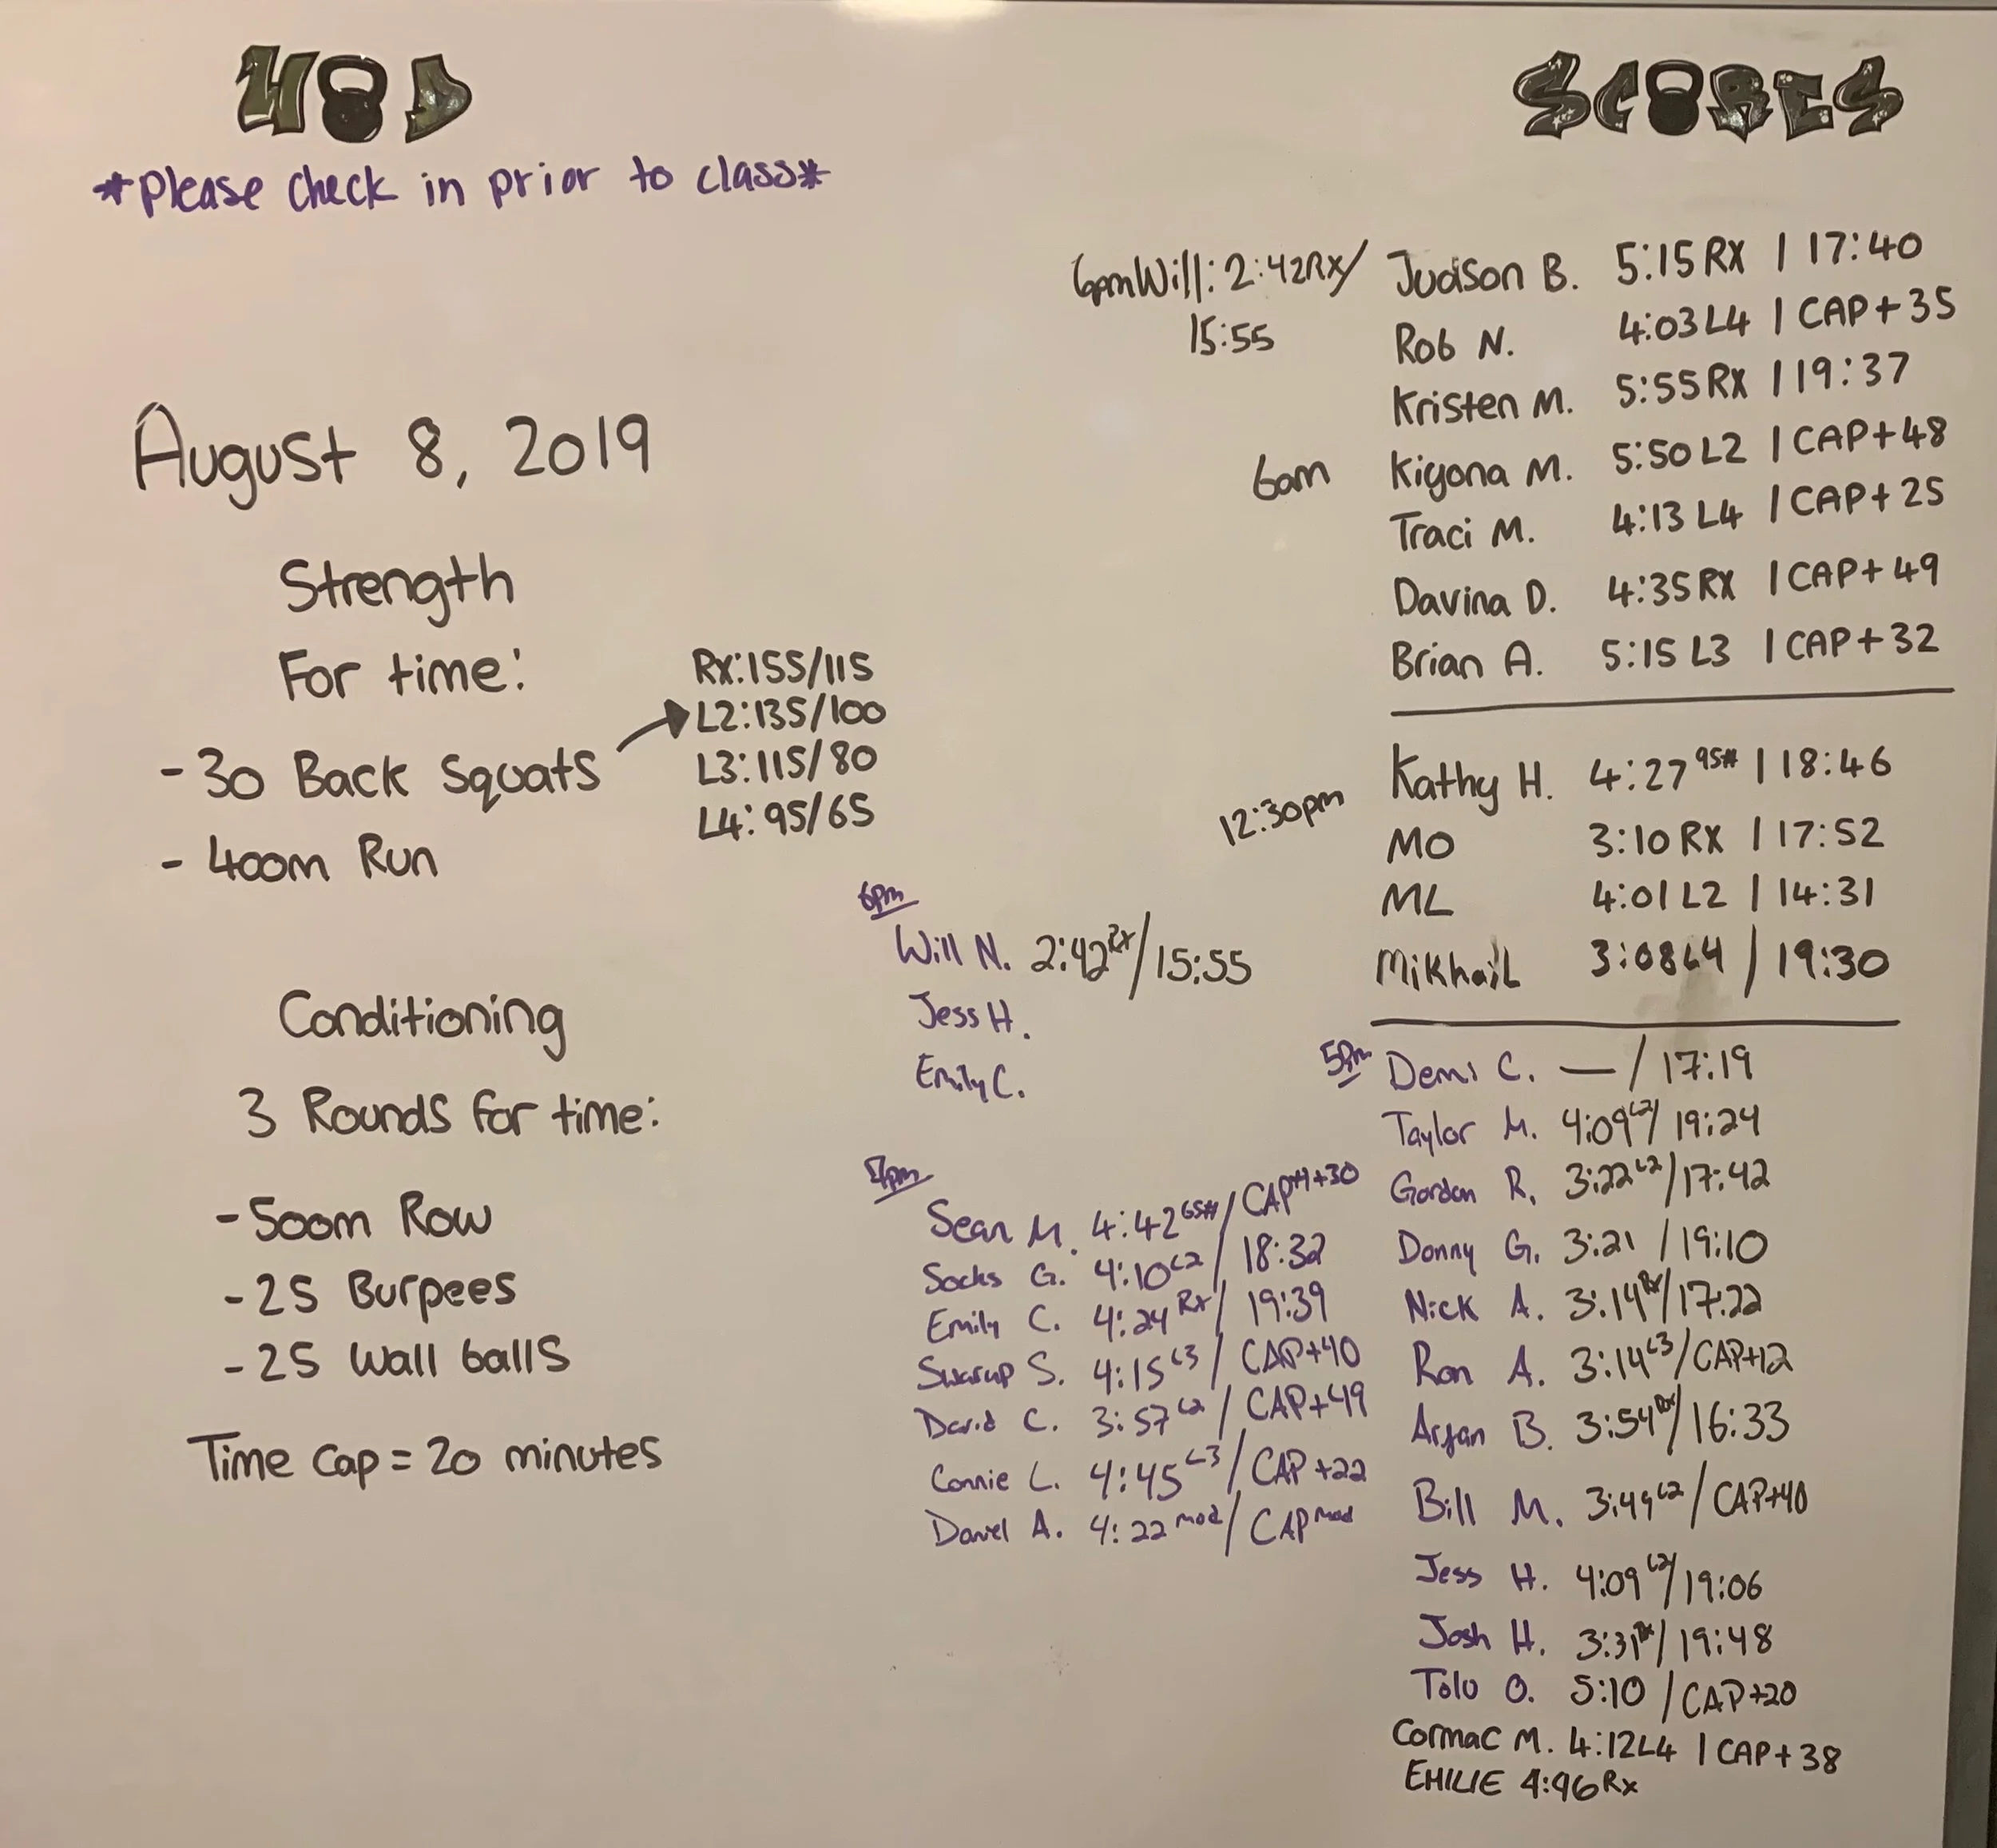 WOD
*Please check in prior to class*
August 8, 2019
Strength
For time:
- 30 Back Squats
- 400m Run
Rx:155/115
L2:135/100
L3:115/80
L4:95/65
Conditioning
3 Rounds for time:
- 500m Row
- 25 Burpees
- 25 Wall balls
Time Cap = 20 minutes
SCORES
6pm Will: 2:42Rx/
15:55
6am
Judson B. 5:15 RX | 17:40
Rob N. 4:03 L4 | CAP+35
Kristen M. 5:55 RX | 19:37
Kiyona M. 5:50 L2 | CAP+48
Traci M. 4:13 L4 | CAP+25
Davina D. 4:35 RX | CAP+49
Brian A. 5:15 L3 | CAP+32
12:30pm
Kathy H. 4:27 95# | 18:46
MO 3:10 RX | 17:52
ML 4:01 L2 | 14:31
Mikhail 3:08 L4 / 19:30
6pm
Will N. 2:42 Rx/15:55
Jess H.
Emily C.
4pm
Sean M. 4:42 65#/ CAP+30
Socks G. 4:10 L2/ 18:32
Emily C. 4:24 Rx/ 19:39
Swarup S. 4:15 L3/ CAP+40
David C. 3:57 L2/ CAP+49
Connie L. 4:45 L3/ CAP+22
Daniel A. 4:22 mod/ CAP mod
5pm
Demi C. — / 17:19
Taylor M. 4:09 L2/ 19:24
Gordon R. 3:22 L2/17:42
Donny G. 3:21 /19:10
Nick A. 3:14 Rx/17:22
Ron A. 3:14 L3/CAP+12
Aryan B. 3:54 Rx/16:33
Bill M. 3:49 L2/ CAP+40
Jess H. 4:09 L2/19:06
Josh H. 3:31 Rx/19:48
Tolu O. 5:10 /CAP+20
Cormac M. 4:12 L4 | CAP+38
EMILIE 4:46 Rx